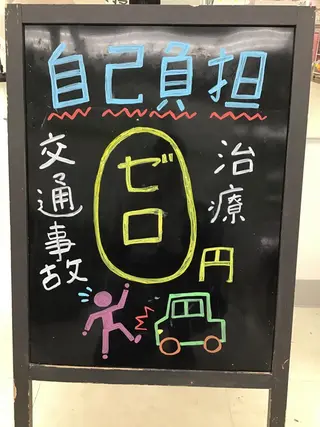 自己負担
交通事故
治療
ゼロ
円